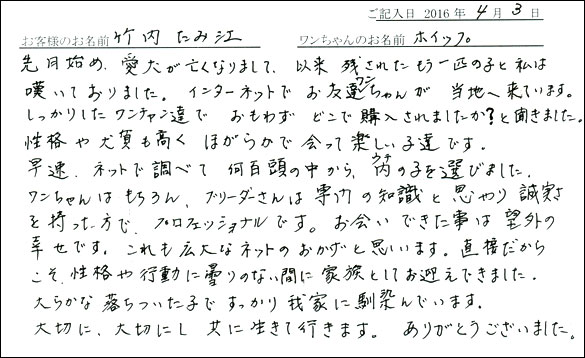 ご記入日 2016年 4月 3日
お客様のお名前 竹内 たみ江 ワンちゃんのお名前 ホイップ
先月始め、愛犬が亡くなりまして、以来 残されたもう一匹の子と私は
嘆いておりました。インターネットで お友達ワンちゃんが 当地へ来ています。
しっかりしたワンチャン達で おもわず どこで購入されましたか?と聞きました。
性格や犬質も高く ほがらかで会って楽しい子達です。
早速、ネットで調べて 何百頭の中から、内ウチの子を選びました。
ワンちゃんはもちろん、ブリーダーさんは専門の知識と思やり誠実さ
を持った方で、プロフェッショナルです。お会いできた事は望外の
幸せです。これも広大なネットのおかげと思います。直接だから
こそ、性格や行動に曇りのない間に家族としてお迎えできました。
大らかな落ちついた子ですっかり我家に馴染んでいます。
大切に、大切にし 共に生きて行きます。 ありがとうございました。